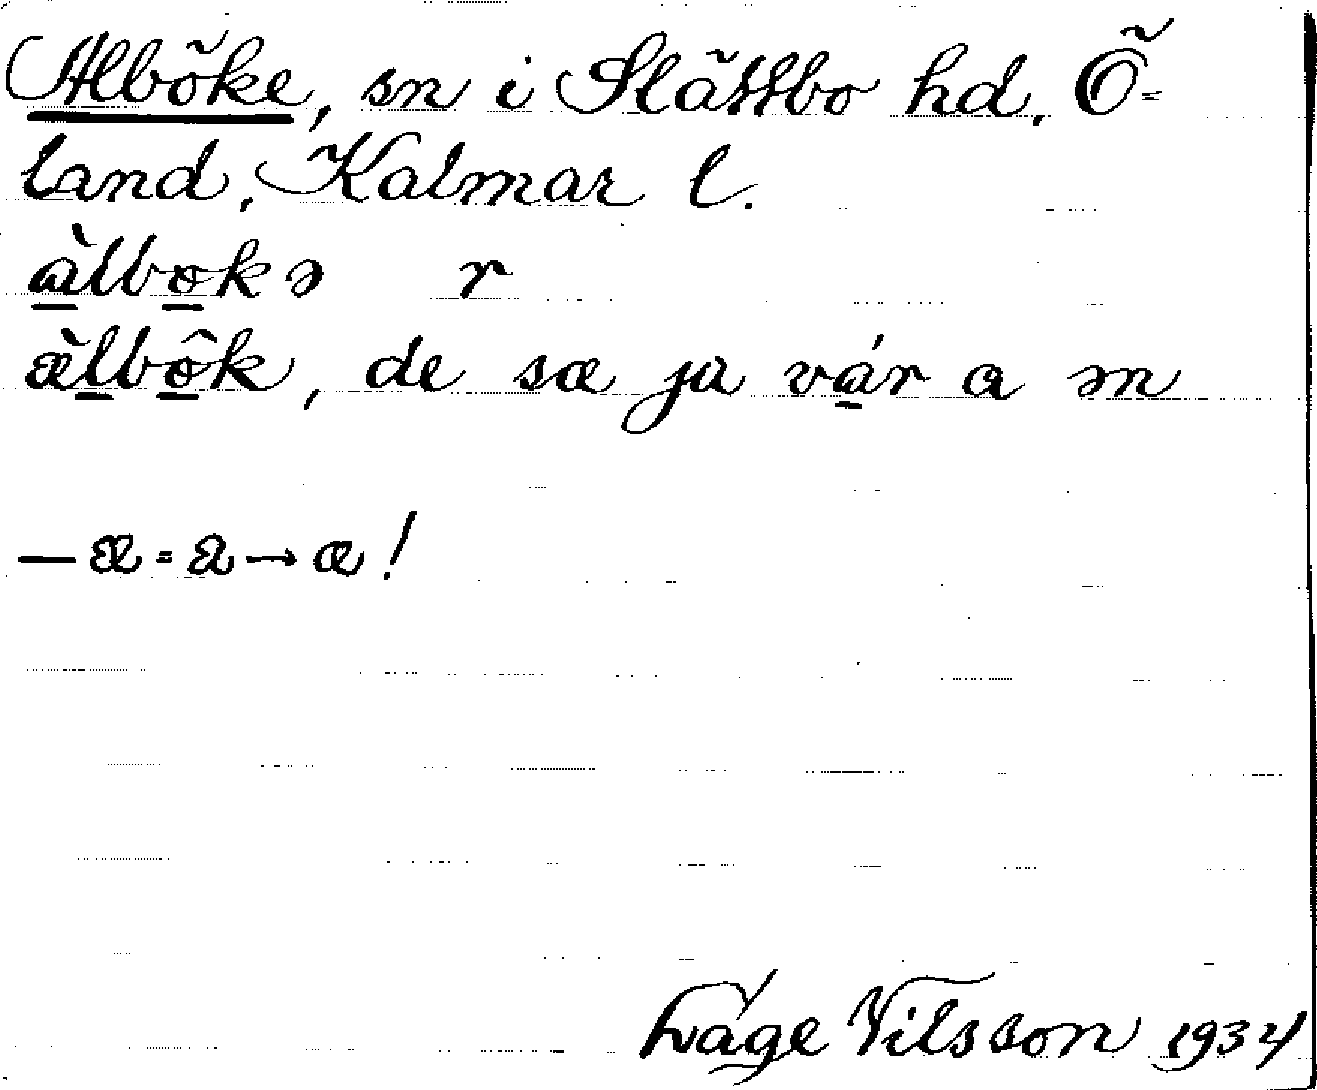 Alböke, sn i Slättbo hd. Ö-
land, Kalmar l.
àlbokə r
æ̀lbôk, de sæ ja vár a ən
— æ = a → a !
Nilsson 1934